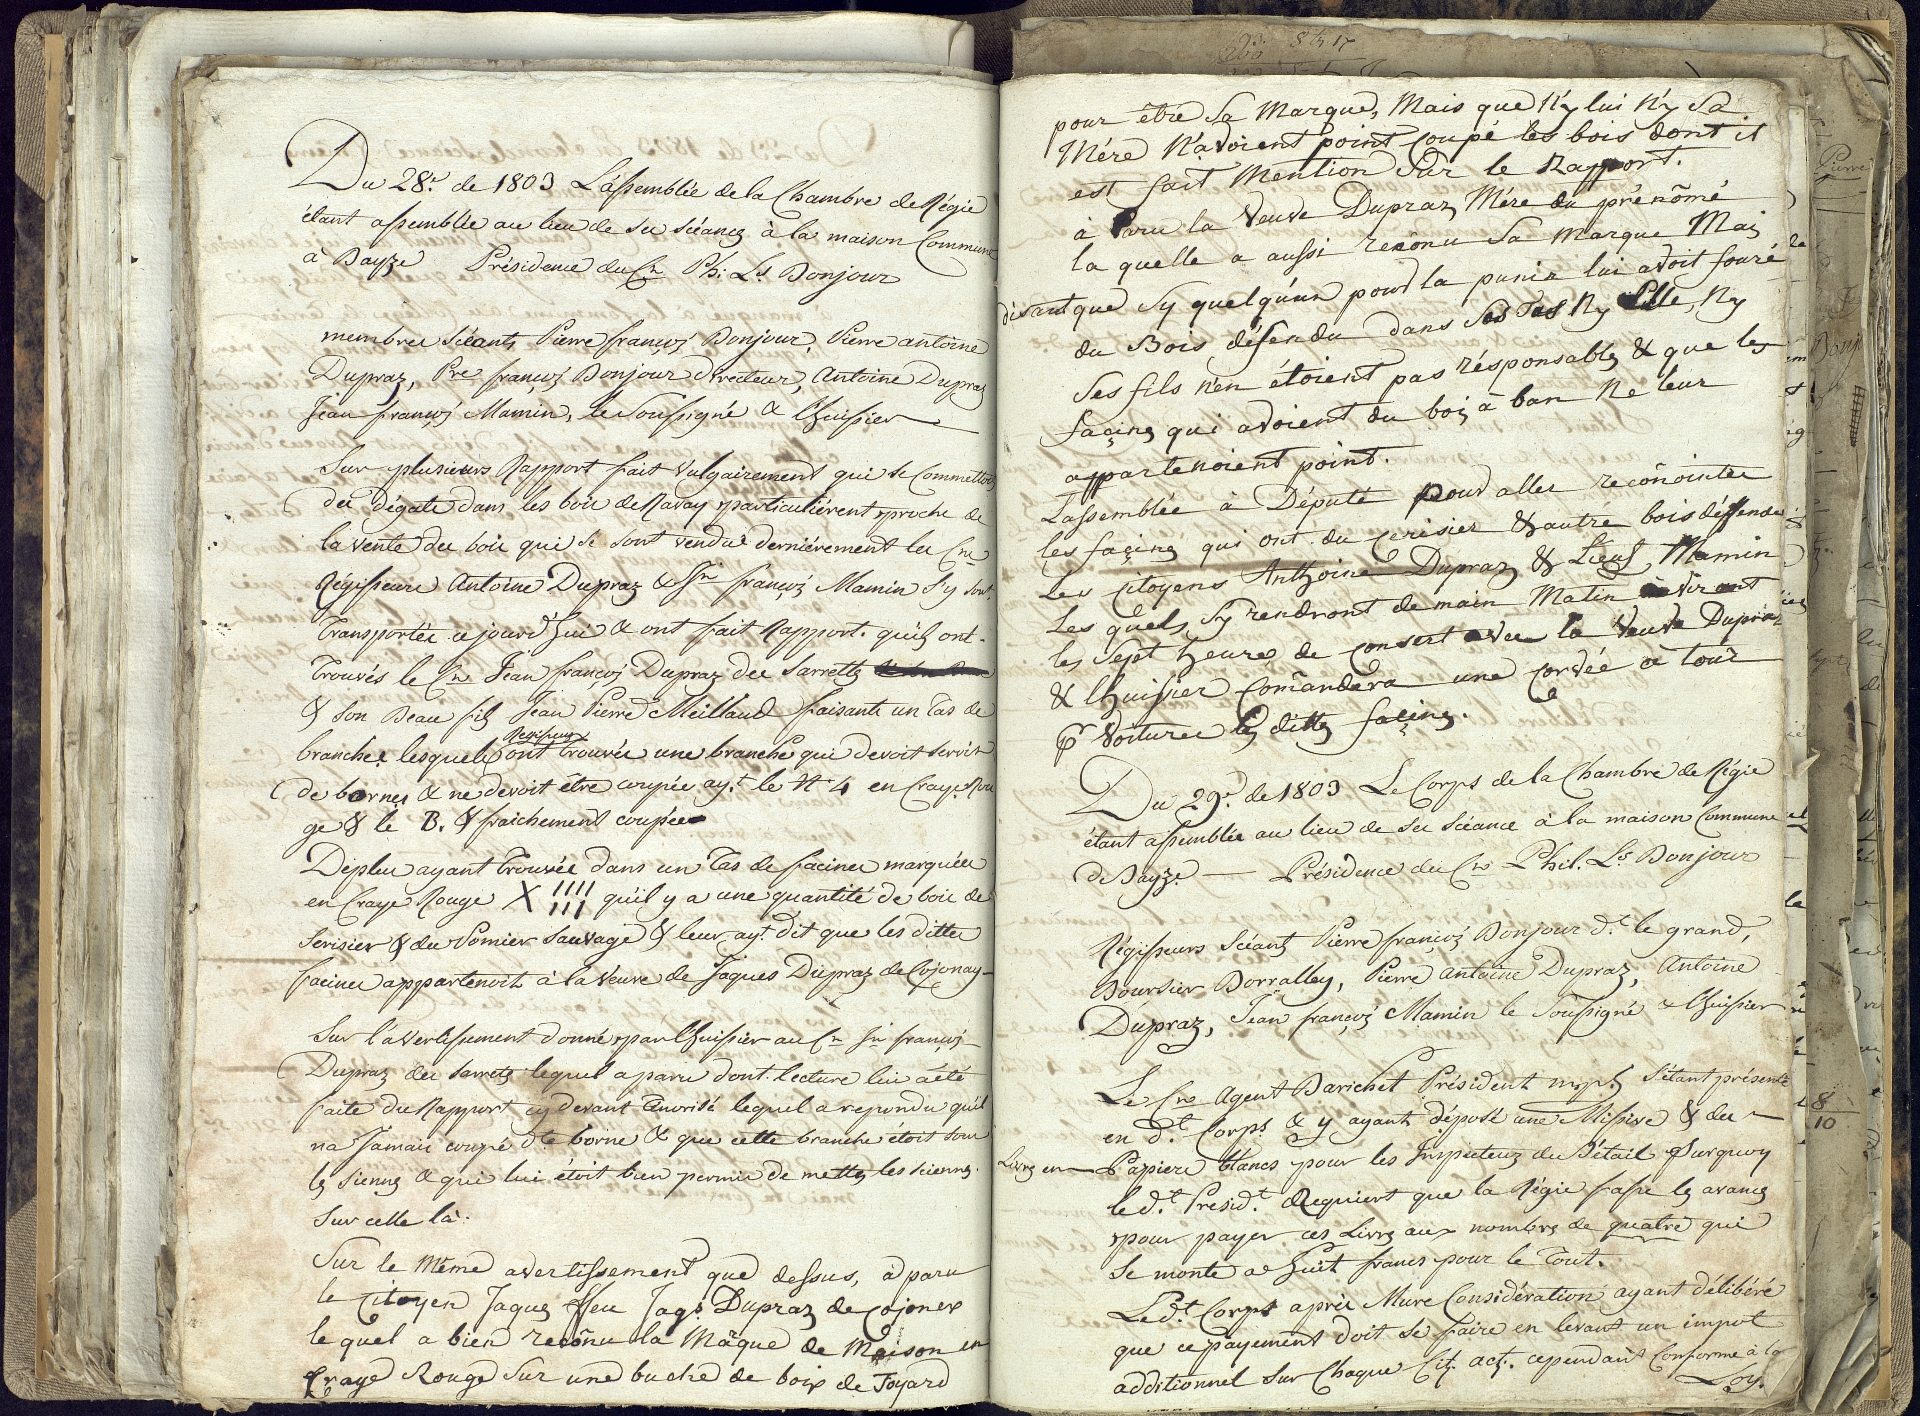 Du 28.r de 1803 L'assemblée de la Chambre de Régie
étant assemblée au lieu de ses séances à la maison Commune
à Bayze Présidence du Cn Ph: Ls Bonjour
membres Séants Pierre françois Bonjour, Pierre antoine
Dupraz, Pre françois Bonjour directeur, Antoine Dupraz
Jean françois Mamin, le Soussigné & l'huissier
Sur plusieurs Rapport fait vulgairement qui se Commettoit
des dégats dans les bois de Ravay particulièrent proche de
la vente des bois qui se sont vendue dernièrement les Cns
Régisseurs Antoine Dupraz & Jn françois Mamin s'y sont
transportés ce jourd'hui & ont fait Rapport. qu'ils ont
trouvés le Cn Jean françois Dupraz des Sarrets
& son Beau fils Jean Pierre Meillaud faisants un Tas de
Régisseurs
branches lesquels ont trouvée une branche qui devoit servir
de bornes & ne devoit être coupée ayt. le N 4 en Craye Rou
ge & le B. & fraichement coupée
Deplus ayant trouvée dans un Tas de facines marquées
en Craye Rouge X IIII III qu'il y a une quantité de bois de
Serisier & du Pomier Sauvage & leur ayt. dit que les dittes
facines appartenoit à la Veuve de Jaques Dupraz de Cojonay
Sur l'avertissement donné par l'huissier au Cn Jn françois
Dupraz des Sarrets lequel a paru dont lecture lui a été
faite du Rapport cy devant lequel a repondu qu'il
na Jamais coupé dte borne & que cette branche étoit sous
les siennes & qui lui étoit bien permis de mettre les siennes
Sur celle là.
Sur le Même avertissement que dessus, à paru
le Citoyen Jaques ffeu Jaqs Dupraz de Cojonex
le quel a bien reconu la Mâque de Maison en
Craye Rouge Sur une buche de bois de foyard
pour être Sa Marque, Mais que N'y lui N'y Sa
Mére N'avoient point coupé les bois dont il
est fait Mention Sur le Rapport.
à Paru la Veuve Dupraz Mére du prénomé
la quelle a aussi reconu Sa marque Mais
disant que Sy quelqu'un pour la punir lui avoit fouré
du Bois défendu dans Ses Tas Ny Elle, Ny
Ses fils n'en étoient pas résponsables & que les
facines qui avoient du bois à ban Ne leur
appartenoient point.
Lassemblée à Député pour aller reconoitre
les facines qui ont du cerisier & autre bois déffendu
Les Citoyens Anthoine Dupraz & Lieut Mamin
Les quels Sy rendront demain Matin environt
les Sept heures de consert avec la Veuve Dupraz
& l'huissier Comandera une corvée à tour
pr Voiturer les dittes facines.
Du 29.r de 1803 Le Corps de la Chambre de Régie
étant assemblée au lieu de ses Séance à la maison Commune
de Bayze — Présidence du Cn Phil. Ls Bonjour
Régisseurs Séants Pierre françois Bonjour dt. le grand,
Boursier Borralley, Pierre Antoine Dupraz, Antoine
Dupraz, Jean françois Mamin le Soussigné & l'huissier
Le Cn Agent Barichet Président S'étant présenté
en dt. Corps & y ayant déposé une Missive & des
Livres en Papiers blancs pour les Inspecteurs du Bétail Surquoy
le dt. Présidt. Requiert que la Régie fasse les avances
pour payer ces Livres aux nombre de quatre qui
Se monte a huit francs pour le Tout.
Ledt. Corps après Mure Considération ayant délibéré
que ce payement doit se faire en levant un impot
additionnel sur Chaque Cit. act. cependant Conforme à la
Loy.
8
10